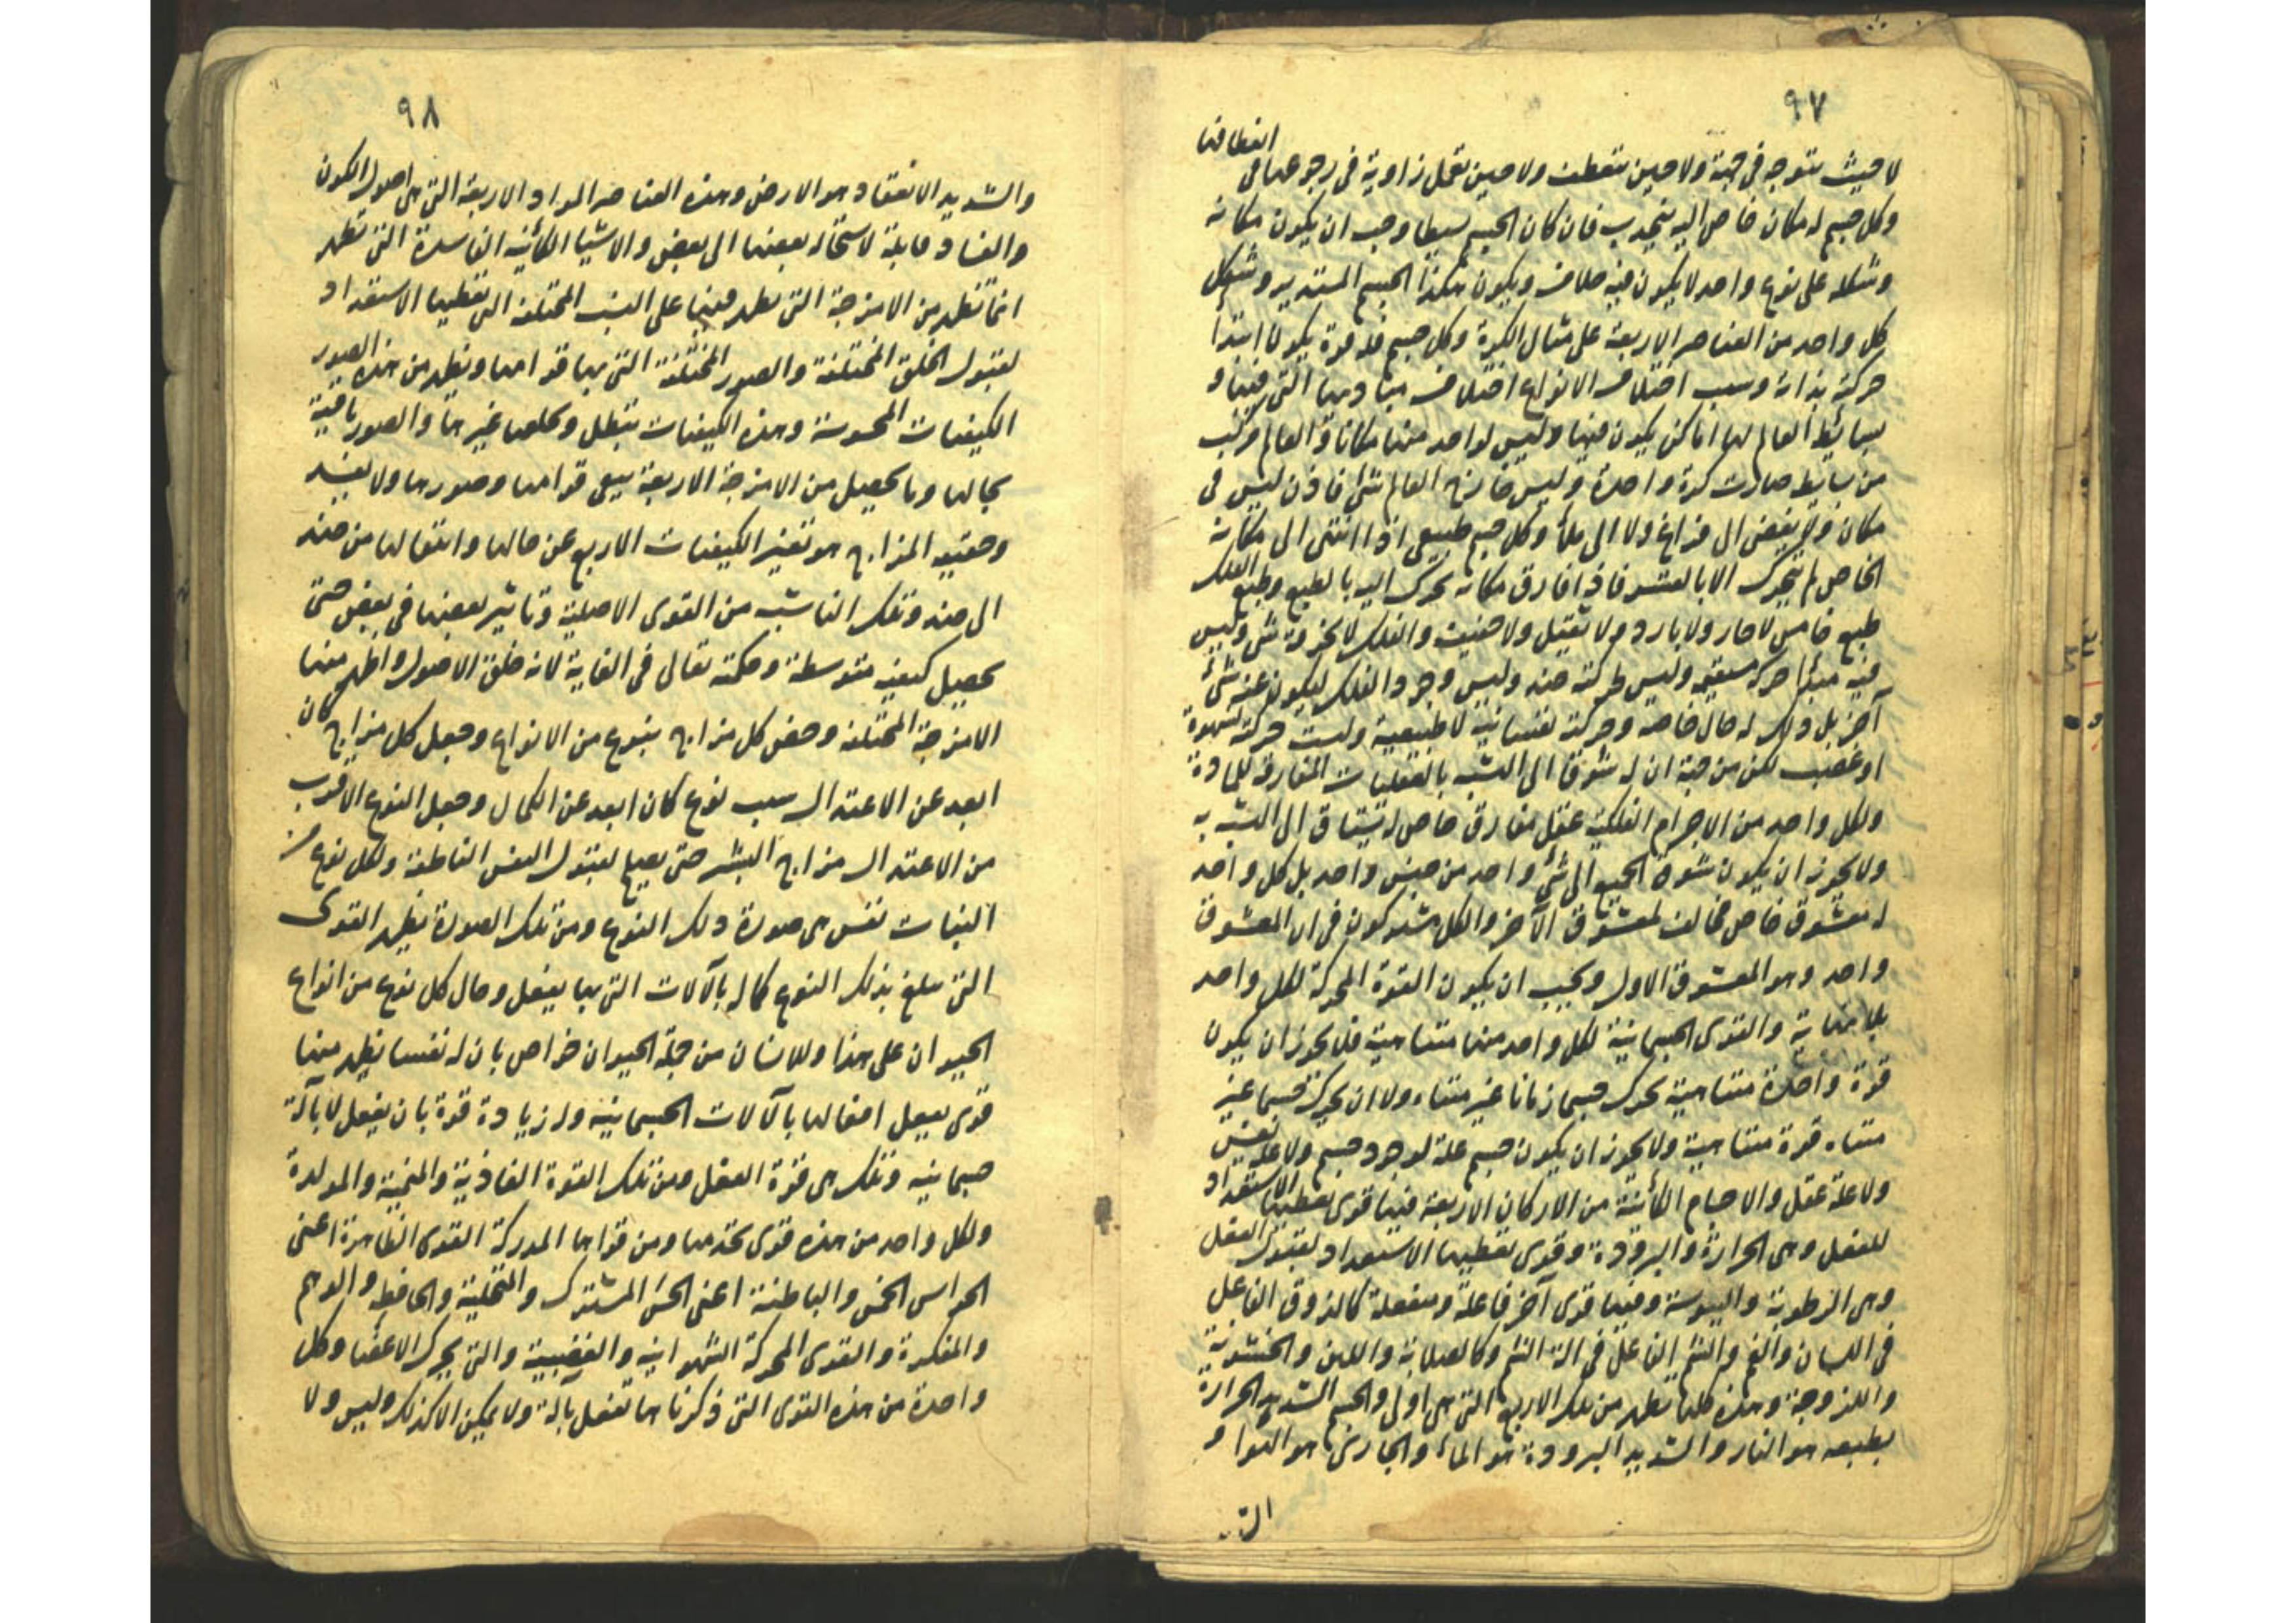 ٩٧
لا حيث يتوجه فى جهة ولا حين ينعطف ولا حين تعمل زاوية فى رجوعها فى انعطافها
وكل جسم له مكان خاص اليه ينجذب فان كان الجسم بسيطا وجب ان يكون مكانه
وشكله على نوع واحد لا يكون فيه خلاف ويكون هكذا الجسم المستدير وشكل
كل واحد من العناصر الاربعة على مثال الكرة وكل جسم فله قوة يكون ابتدأ
حركته بذاته وسبب اختلاف الانواع اختلاف مباديها التى فيها و
بسائط العالم لها اماكن يكون فيها وليس لواحد منها مكانان والعالم مركب
من بسايط صارت كرة واحدة وليس خارج العالم شئ فاذن ليس فى
مكان ولا يفضى الى فراغ ولا الى ملأ وكل جسم طبيعى اذا انتهى الى مكانه
الخاص لم يتحرك الا بالقسر فاذا فارق مكانه تحرك اليه بالطبع وطبع الفلك
طبع خامس لا حار ولا بارد ولا ثقيل ولا خفيف والفلك لا يخرقه شئ وليس
فيه مبدأ حركة مستقيمة وليس لحركته ضد وليس وجود الفلك ليكون عنه شئ
آخر بل ذلك له حال خاصه وحركته نفسانية لا طبيعية وليست حركته لشهوة
او غضب لكن من جهة ان له شوقا الى التشبه بالعقليات المفارقة للمادة
ولكل واحد من الاجرام الفلكية عقل مفارق خاص له يشتاق الى التشبه به
ولا يجوز ان يكون شوق الجميع الى شئ واحد من جنس واحد بل كل واحد
له معشوق خاص مخالف لمعشوق الآخر والكل مشتركون فى ان المعشوق
واحد وهو المعشوق الاول ويجب ان يكون القوة المحركة لكل واحد
بلا نهاية والقوى الجسمانية لكل واحد منها متناهية فلا يجوز ان يكون
قوة واحدة متناهية يحرك جسما زمانا غير متناه ولا ان يحرك جسما غير
متناه قوة متناهية ولا يجوز ان يكون جسم علة لوجود جسم ولا علة نفس
ولا علة عقل والاجسام الكائنة من الاركان الاربعة فيها قوى تعطيها الاستعداد
للفعل وهى الحرارة والبرودة وقوى تعطيها الاستعداد لقبول الفعل
وهى الرطوبة واليبوسة وفيها قوى آخر فاعلة ومنفعلة كالذوق الفاعل
فى اللسان والفم والشم الفاعل فى آلة الشم وكالصلابة واللين والخشونة
واللزوجة وهذه كلها تظهر من تلك الاربع التى هى اولى والجسم الشديد الحرارة
بطبعه هو النار والشديد البرودة هو الماء والجارى هو الهوا و
٩٨
والشديد الانعقاد هو الارض وهذه العناصر المواد الاربعة التى هى اصول الكون
والفساد قابلة لاستحالة بعضها الى بعض والاشيا الكائنة الفاسدة التى تظهر
انما تظهر من الامزجة التى تظهر فيها على النسب المختلفة التى تعطيها الاستعداد
لقبول الخلق المختلفة والصور المختلفة التى بها قوامها وتظهر من هذه الصور
الكيفيات المحسوسة وهذه الكيفيات تتبطل ويخلفها غيرها والصور باقية
بحالها وما يحصل من الامزجة الاربعة يبقى قوامها وصورها ولا يفسد
وحقيقة المزاج هو تغير الكيفيات الاربع عن حالها وانتقالها من ضد
الى ضد وتلك الناشية من القوى الاصلية وتاثير بعضها فى بعض حتى
يحصل كيفية متوسطة وحكمته تعالى فى الغاية لانه خلق الاصول واظهر منها
الامزجة المختلفة وخص كل مزاج بنوع من الانواع وجعل كل مزاج كان
ابعد عن الاعتدال سبب نوع كان ابعد عن الكمال وجعل النوع الاقرب
من الاعتدال مزاج البشر حتى يصلح لقبول النفس الناطقة ولكل نوع من
النبات نفس هى صورة ذلك النوع ومن تلك الصورة يظهر القوى
التى تبلغ بذلك النوع كماله بالآلات التى بها يفعل وحال كل نوع من انواع
الحيوان على هذا وللانسان من جملة الحيوان خواص بان له نفسا يظهر منها
قوى يفعل افعالها بالآلات الجسمانيه وله زيادة قوة بان يفعل لا بآلة
جسمانيه وتلك هى قوة العقل ومن تلك القوة الغاذية والمنمية والمولدة
ولكل واحد من هذه قوى يخدمها ومن قواها المدركة القوى الظاهرة اعنى
الحواس الخمس والباطنة اعنى الحس المشترك والمتخيلة والحافظه والوهم
والمفكرة والقوى المحركة الشهوانيه والغضبية والتى يحرك الاعضا وكل
واحدة من هذه القوى التى ذكرناها تفعل بآلة ولا يمكن الا كذلك وليس ولا